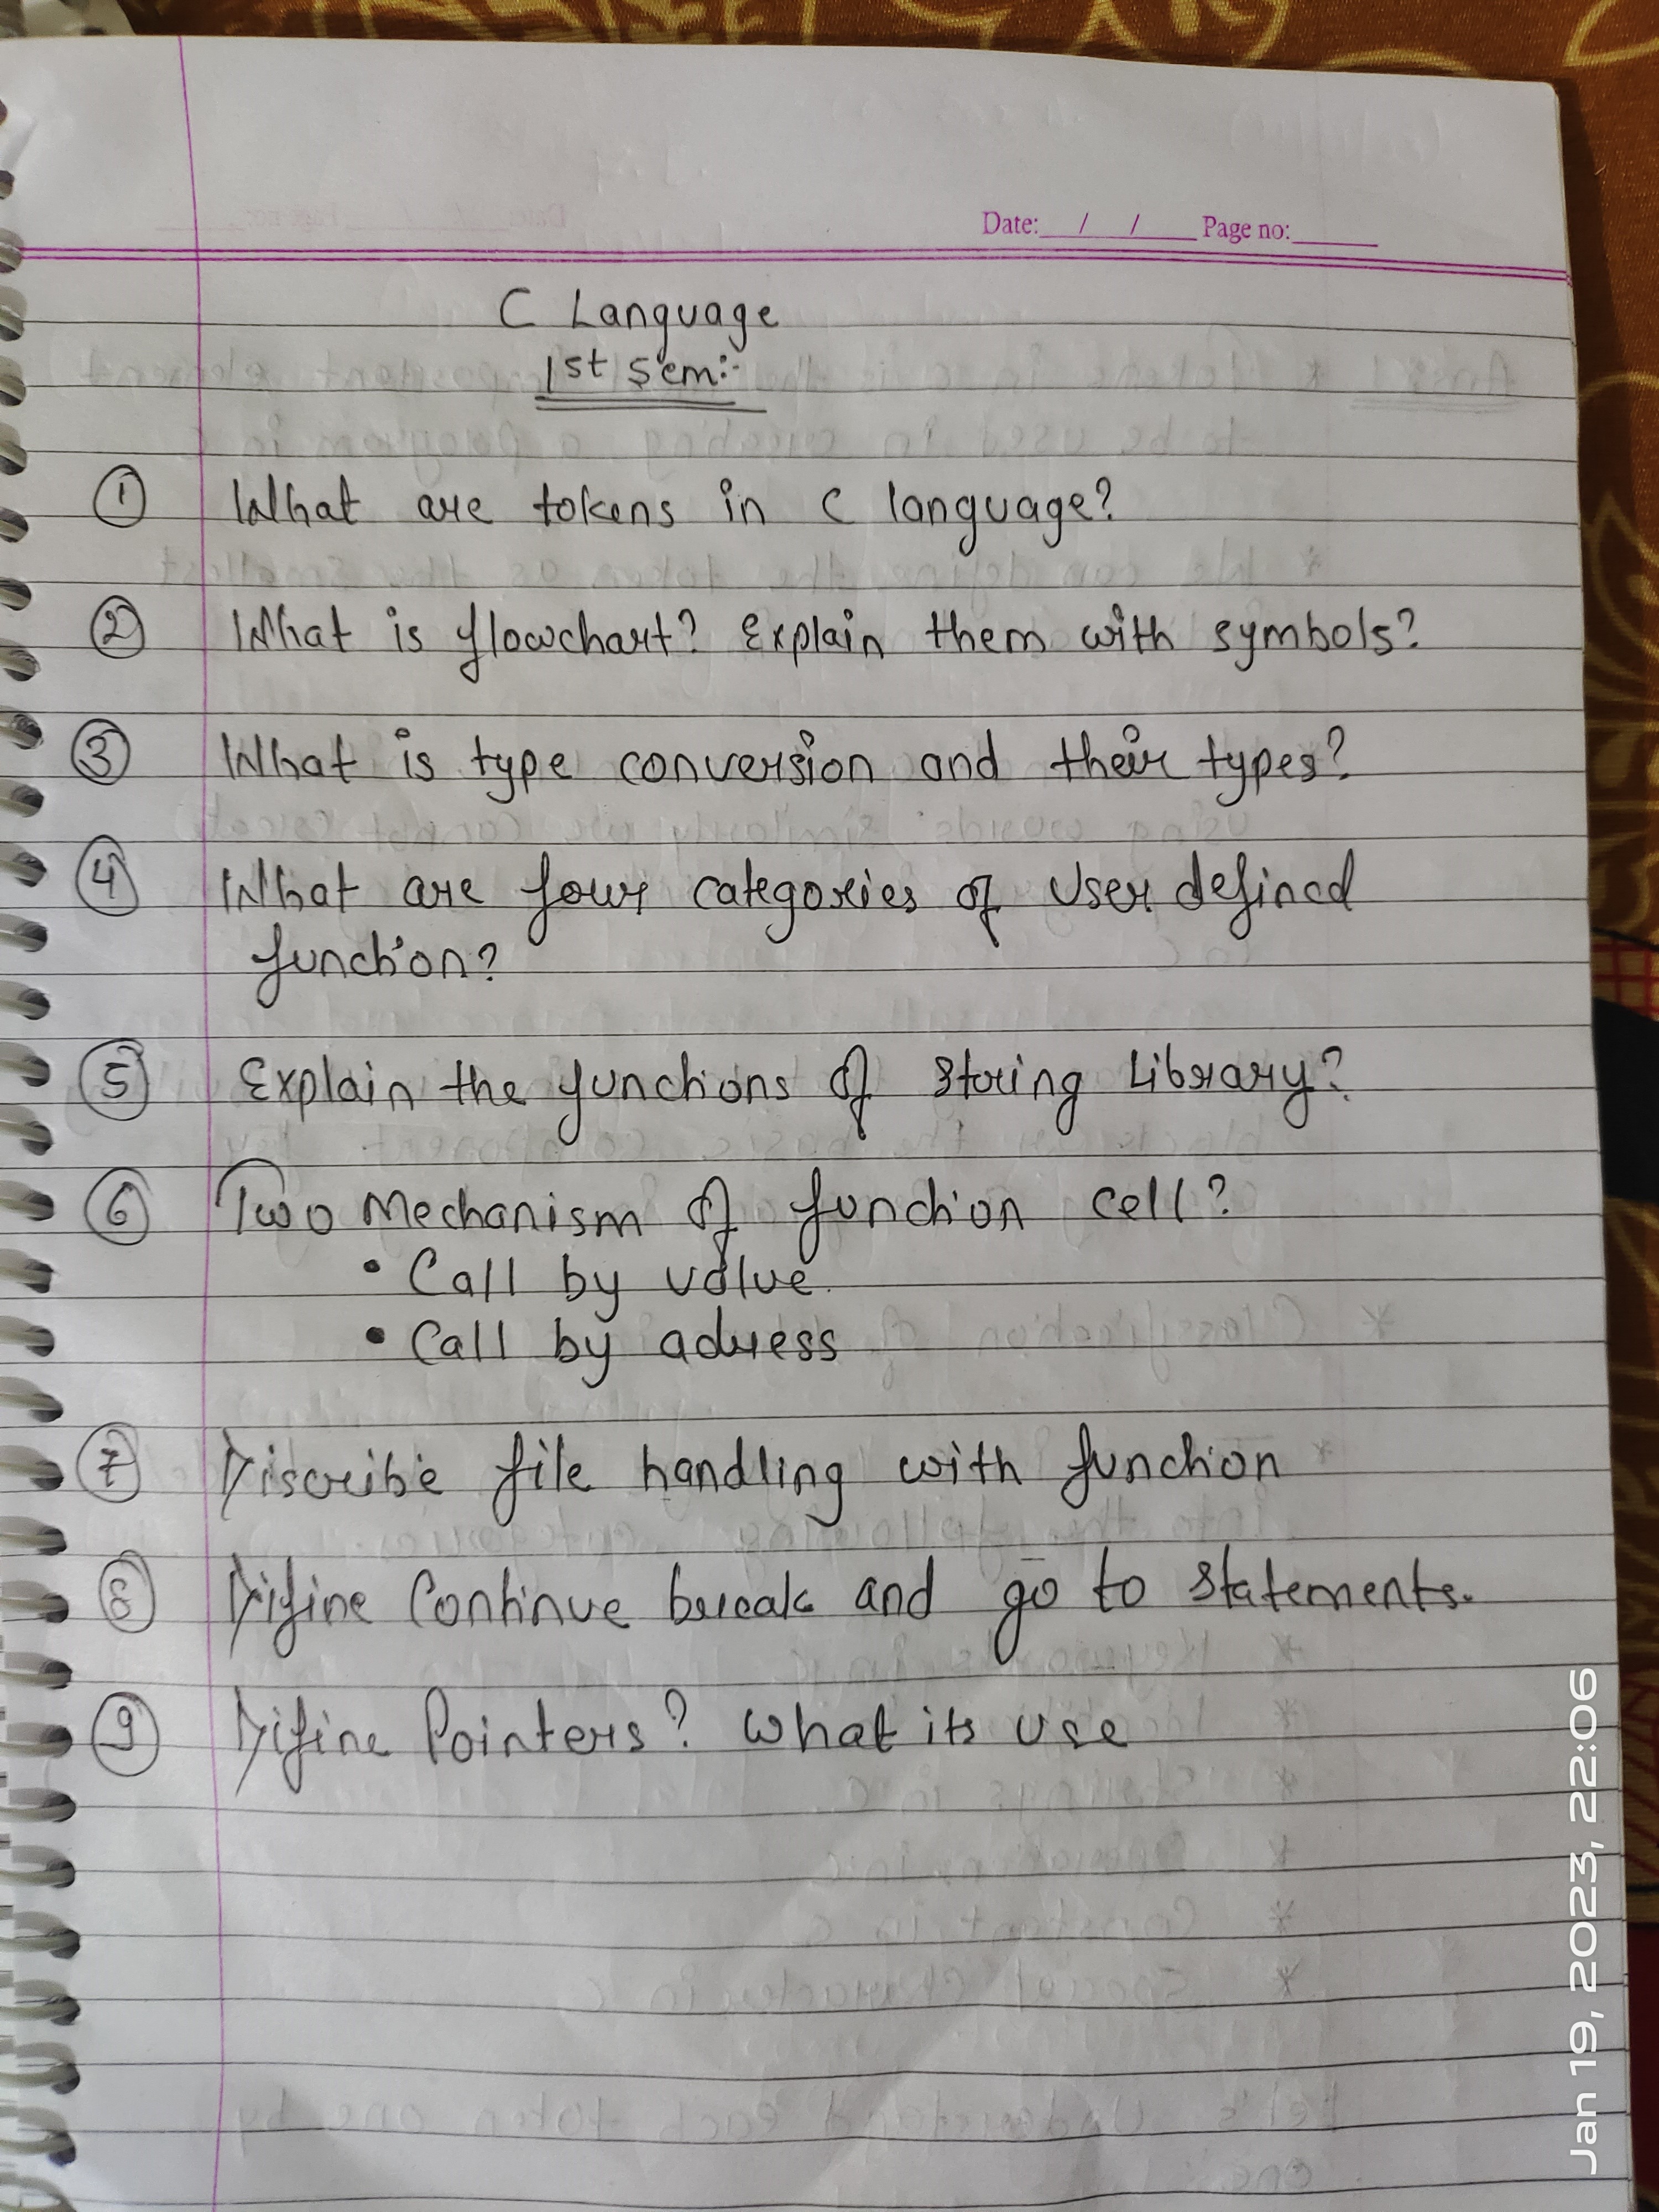 Date: / / Page no:
C Language
1st Sem:-
1 What are tokens in C language?
2 What is flowchart? Explain them with symbols?
3 What is type conversion and their types?
4 What are four categories of User defined
function?
5 Explain the functions of String Library?
6 Two Mechanism of function cell?
• Call by value.
• Call by adress
7 Discribe file handling with function
8 Difine Continue break and go to statements.
9 Difine Pointers? What its use
Jan 19, 2023, 22:06